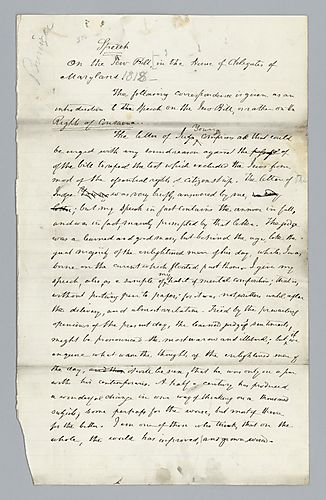 Speech
On the Jew Bill, in the House of Delegates of
Maryland 1818
The following correspondence is given as an
introduction to the Speech on the Jew Bill, or rather on the
Rights of Conscience.
The letter of Judge comprises all that could
be urged with any soundness against the
of the bill to repeal the test which excluded the Jews from
most of the essential rights of citizenship. The letter of
Judge was very briefly answered by me,
but my Speech in fact contains the answer in full,
and was in fact mainly prompted by that letter. The judge
was a learned and good man, but behind the age, like the
great majority of the enlightened men of his day, while I was
borne on the current which floated past them. I give my
speech, also, as a sample of my habit of mental composition, that is,
without putting pen to paper; for I was not written until after
the delivery, and almost verbatim. Tried by the prevailing
opinions of the present day, the learned judge's sentiments,
might be pronounced the most narrow and illiberal; but, if
any one what was the thought of the enlightened men of
the day, it would be seen, that he was only on a par
with his contemporaries. A half a century has produced
a wonderful change in our way of thinking on a thousand
subjects, some perhaps for the worse, but many more
for the better. I am one of those who think, that on the
whole, the world has improved, and grown wiser.